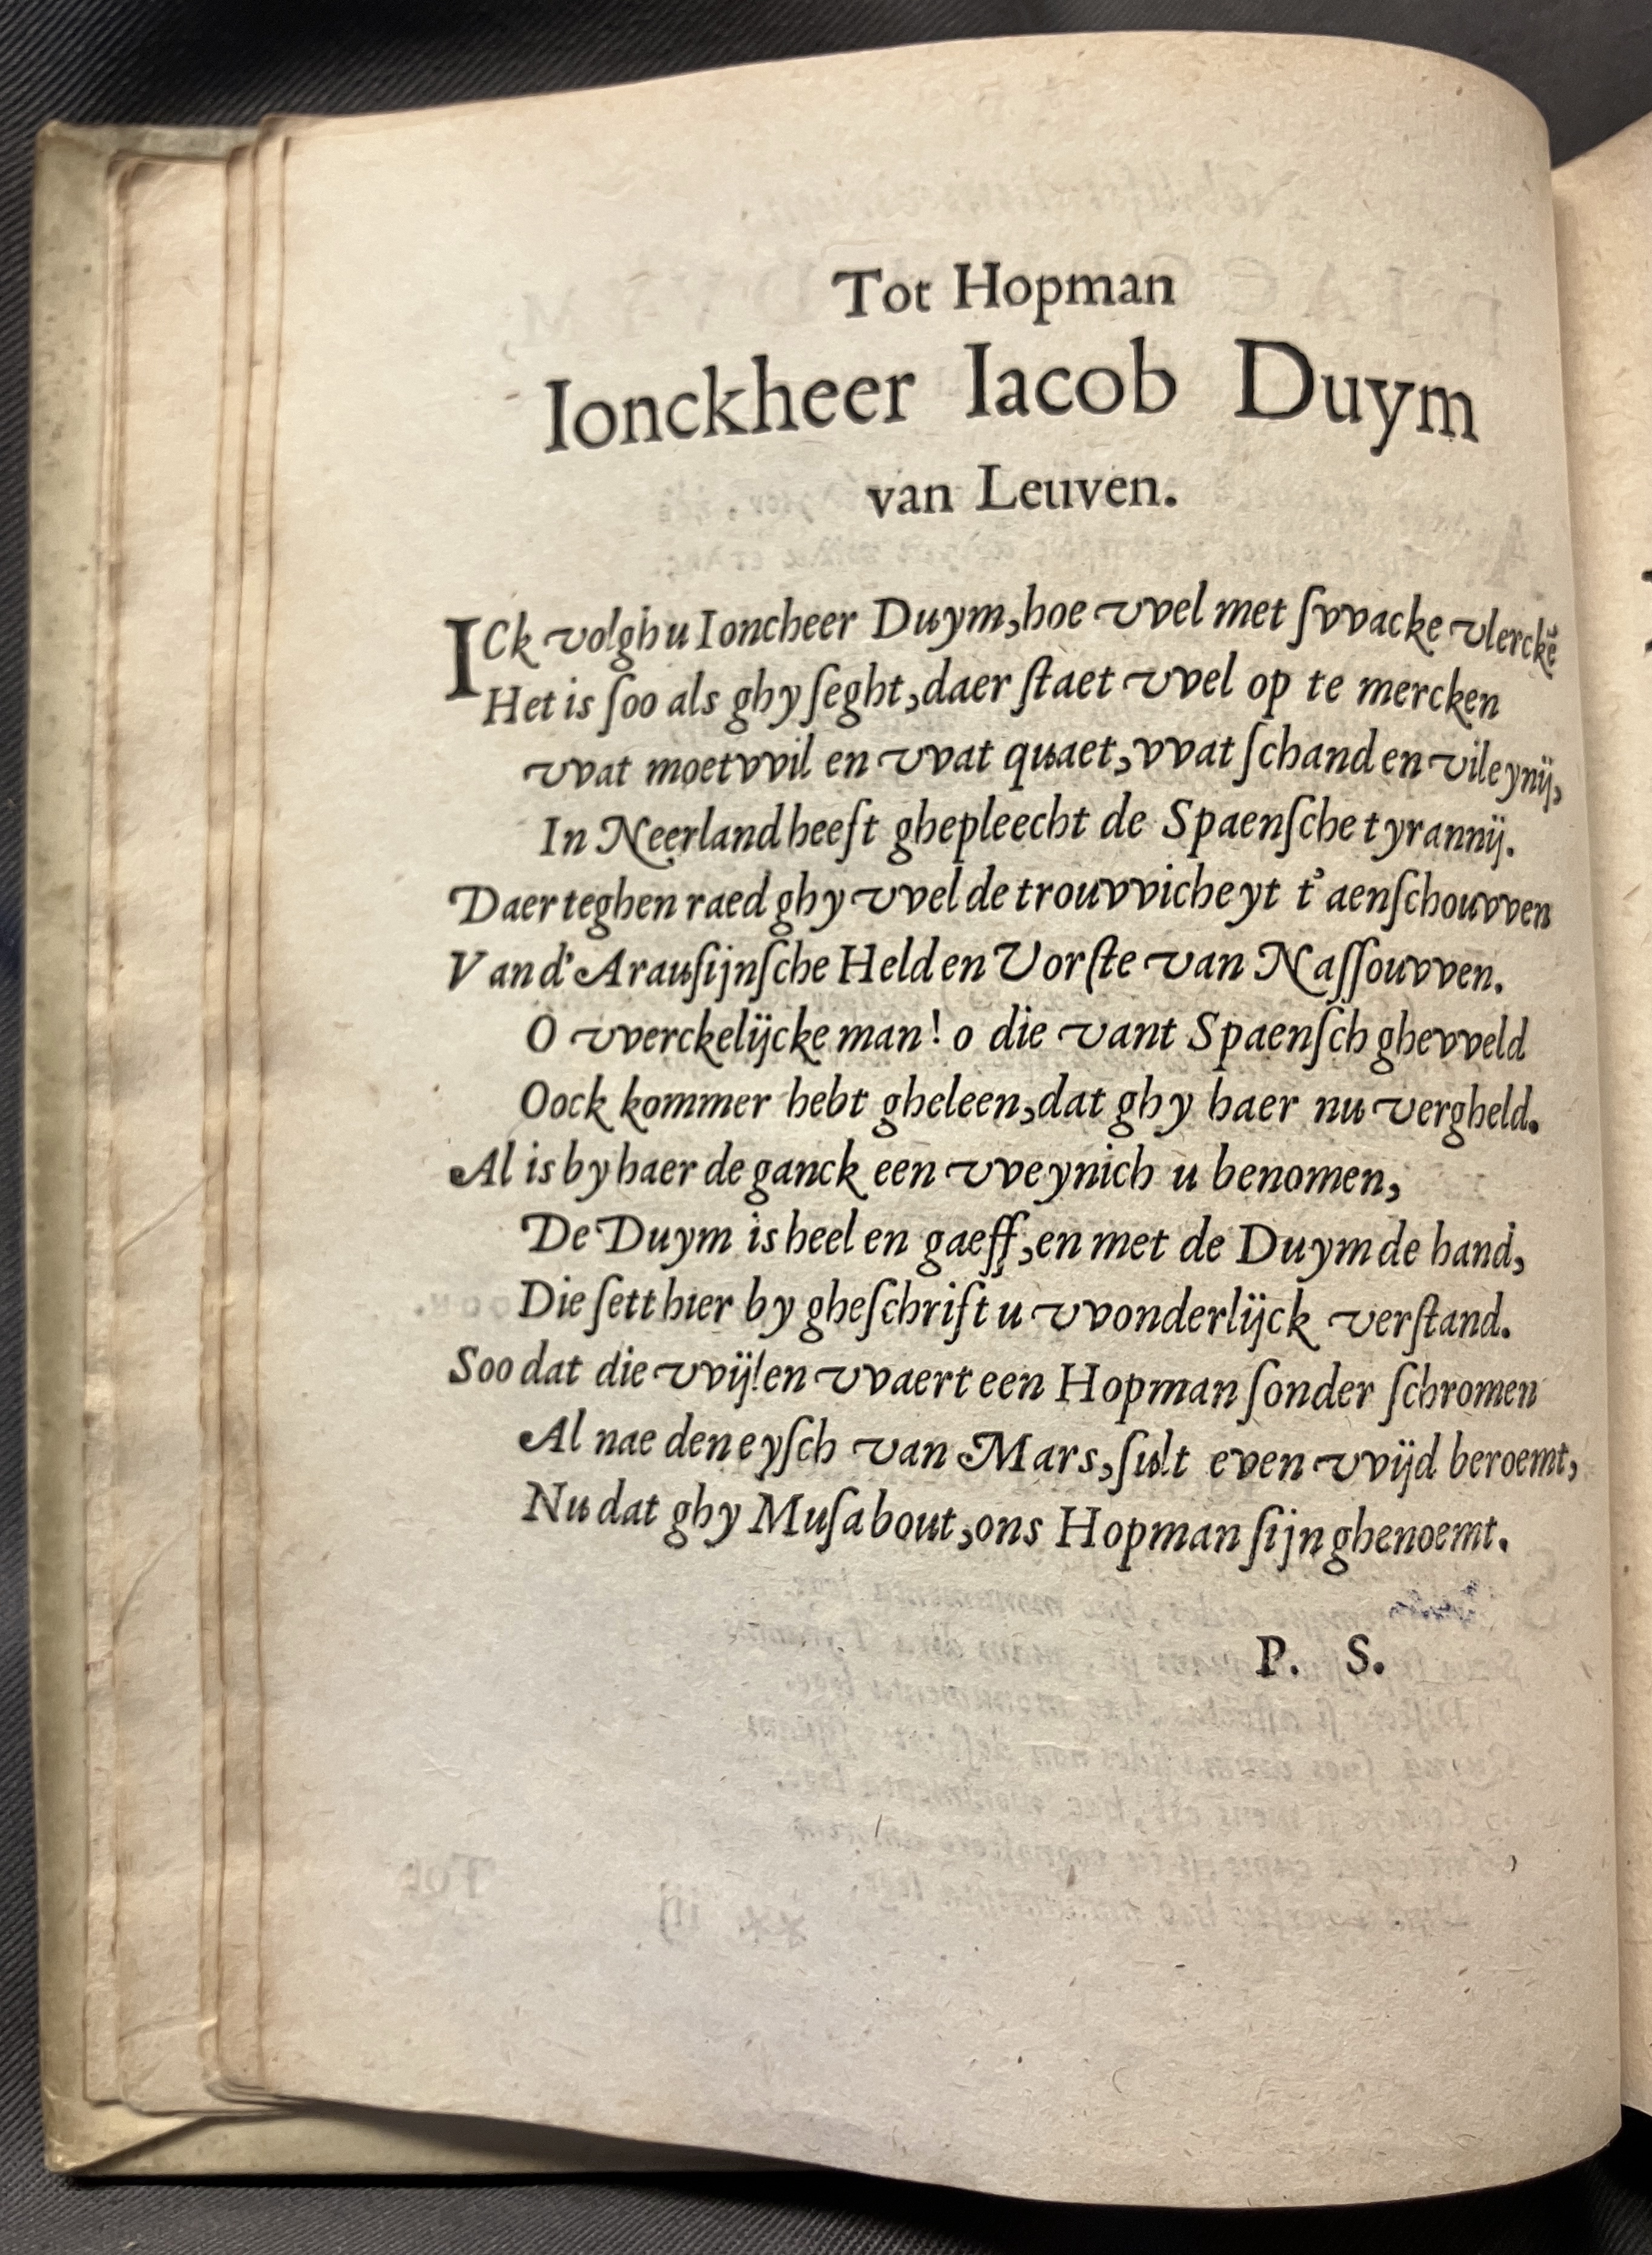 Tot Hopman
Ionckheer Iacob Duym
van Leuven.
ICk volgh u Ioncheer Duym, hoe vvel met ſvvacke vlerckē
Het is ſoo als ghy ſeght, daer ſtaet vvel op te mercken
vvat moetvvil en vvat quaet, vvat ſchand en vileynij,
In Neerland heeft ghepleecht de Spaenſche tyrannij.
Daer teghen raed ghy vvel de trouvvicheyt t'aenſchouvven
Van d'Arauſijnſche Held en Vorſte van Naſſouvven.
O vverckelijcke man! o die vant Spaenſch ghevveld
Oock kommer hebt gheleen, dat ghy haer nu vergheld.
Al is by haer de ganck een vveynich u benomen,
De Duym is heel en gaeff, en met de Duym de hand,
Die ſett hier by gheſchrift u vvonderlijck verſtand.
Soo dat die vvijlen vvaert een Hopman ſonder ſchromen
Al nae den eyſch van Mars, ſult even vvijd beroemt,
Nu dat ghy Muſa bout, ons Hopman ſijn ghenoemt.
P. S.